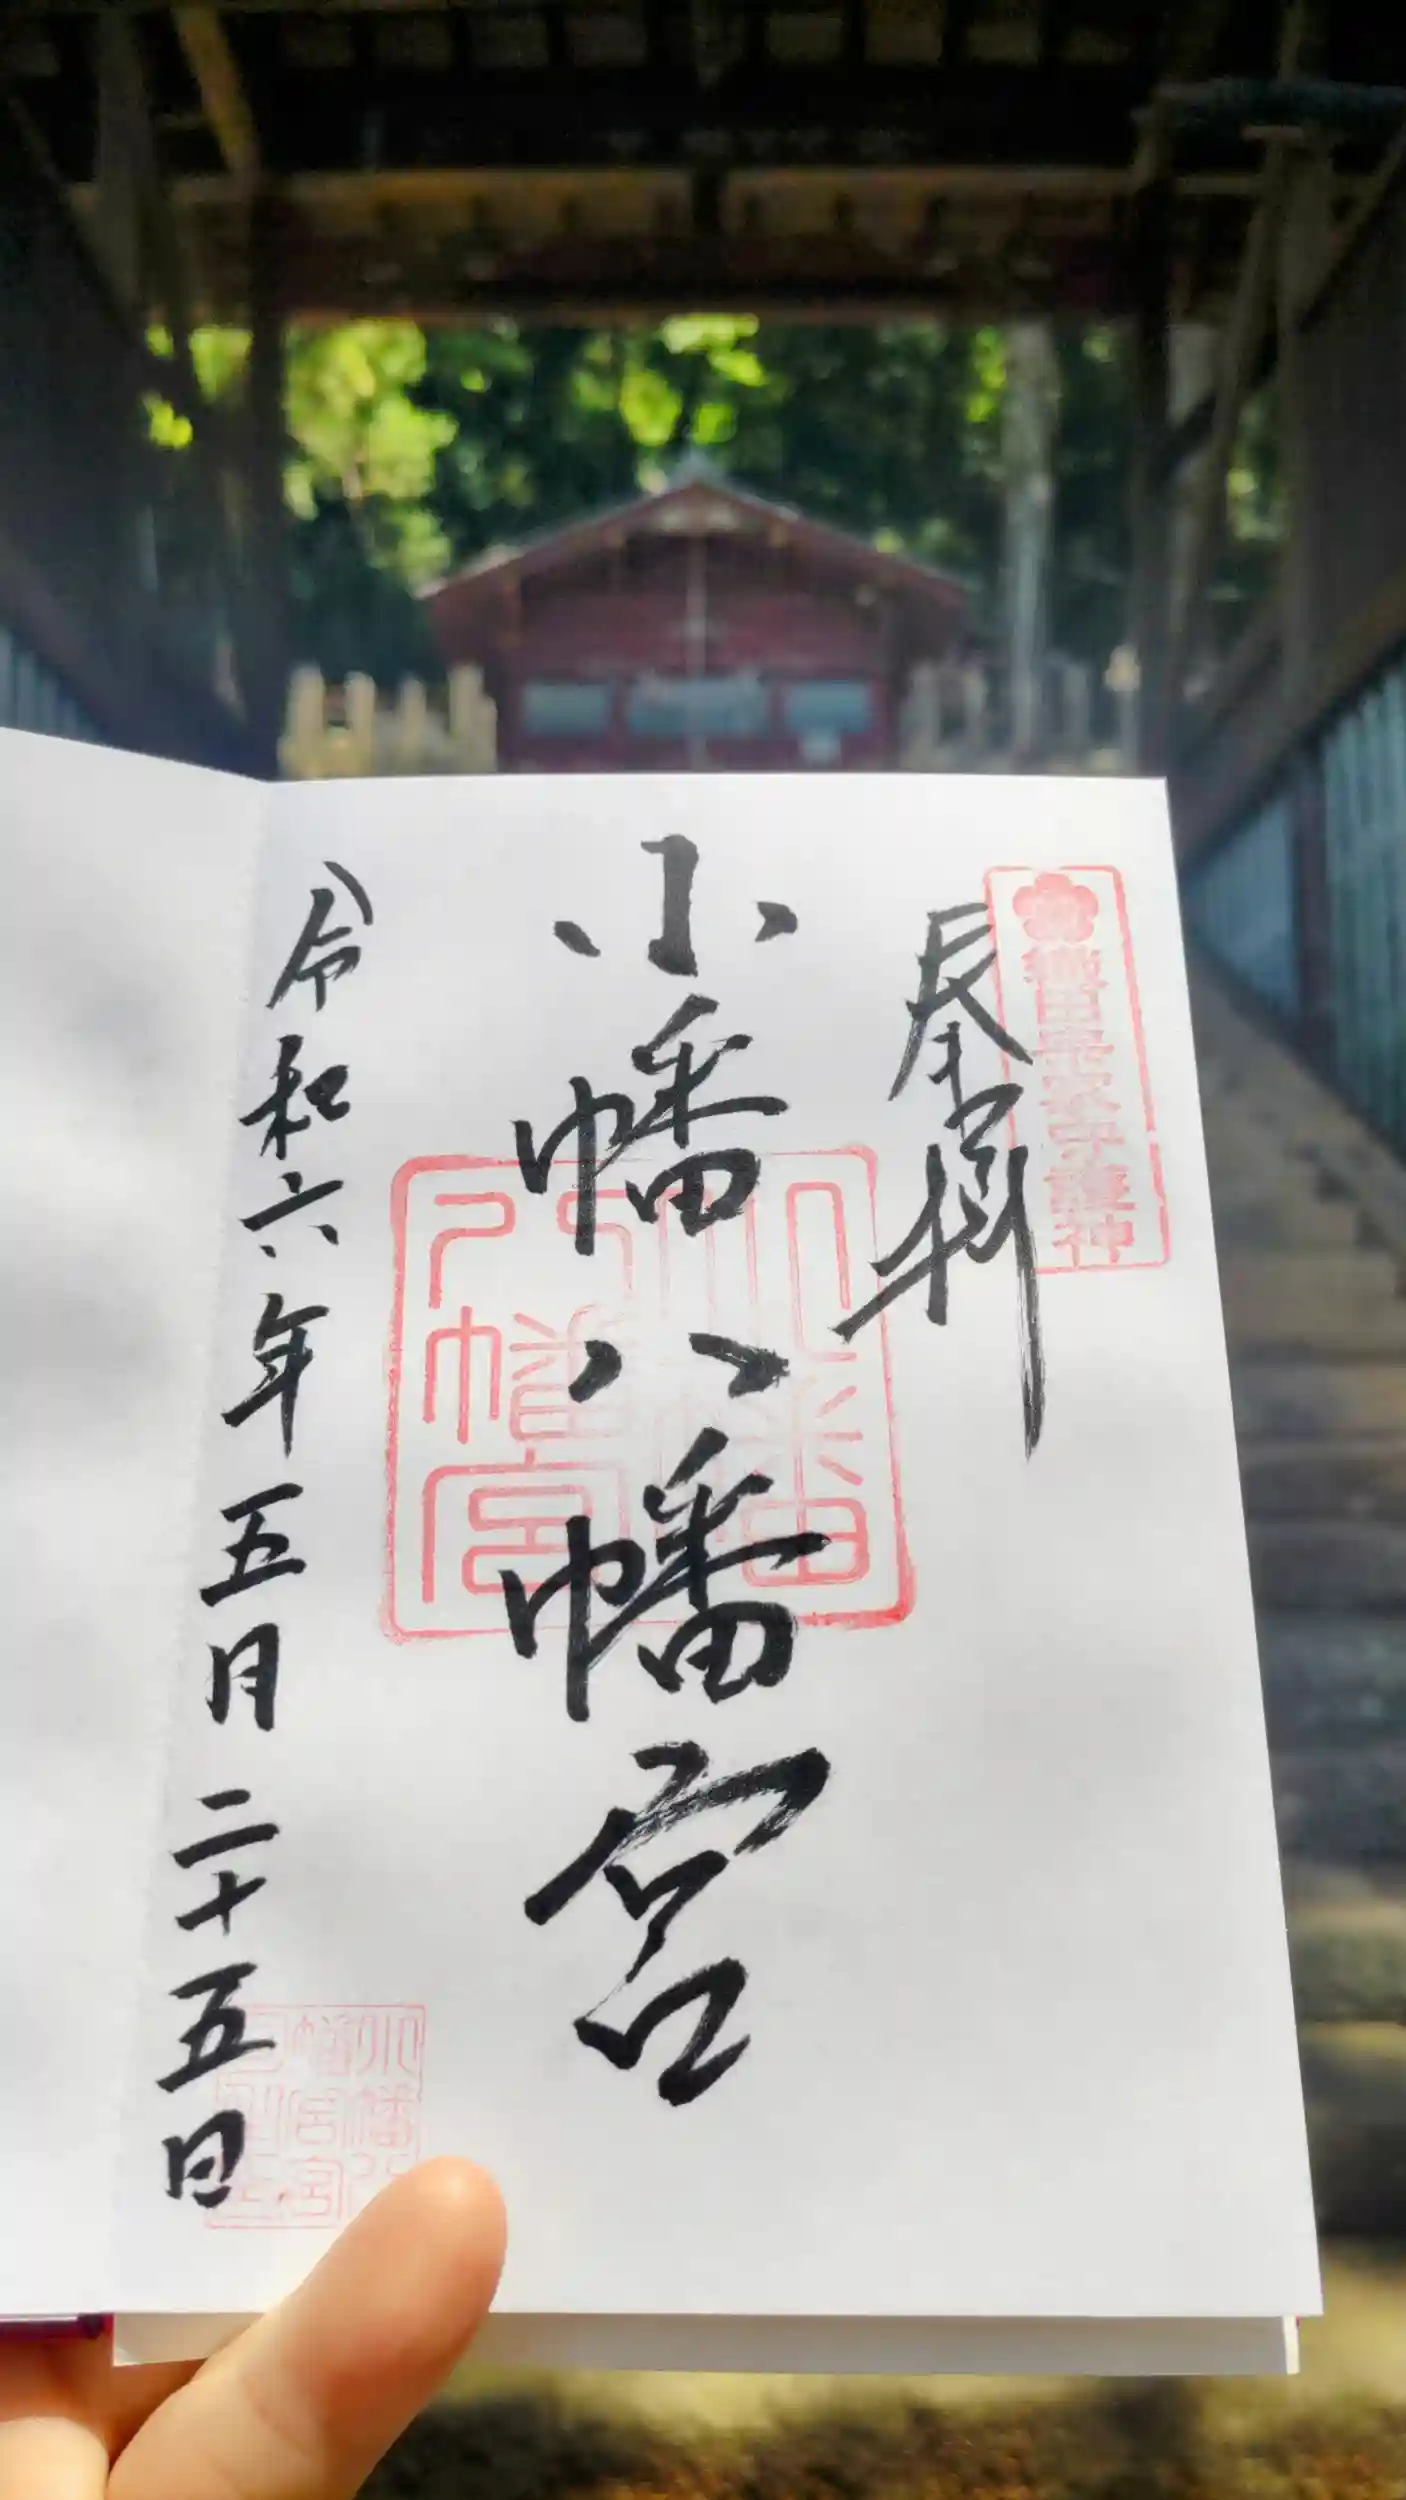 奉拝
小幡八幡宮
令和六年五月二十五日
織田宗家守護神
小幡八幡宮